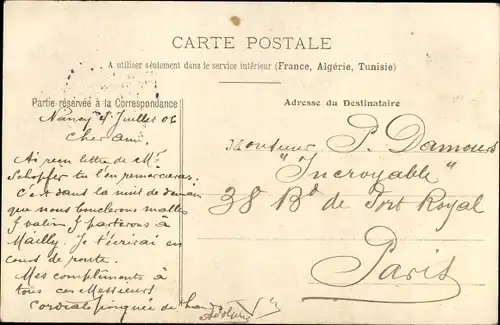 CARTE POSTALE
A utiliser seulement dans le service intérieur (France, Algérie, Tunisie)
Partie réservée à la Correspondance
Adresse du Destinataire
Nancy Juillet 06
Cher ami,
Ai reçu lettre de Mr
Schopfer tu l'en remercieras.
C'est dans la nuit de demain
que nous bouclerons malles
partirons à
Mailly. Je t'écrirai en
cours de route.
Mes compliments à
tous ces Messieurs!
Cordiale poignée de
Monsieur P. Damours
"Incroyable"
38 Bd de Port Royal
Paris